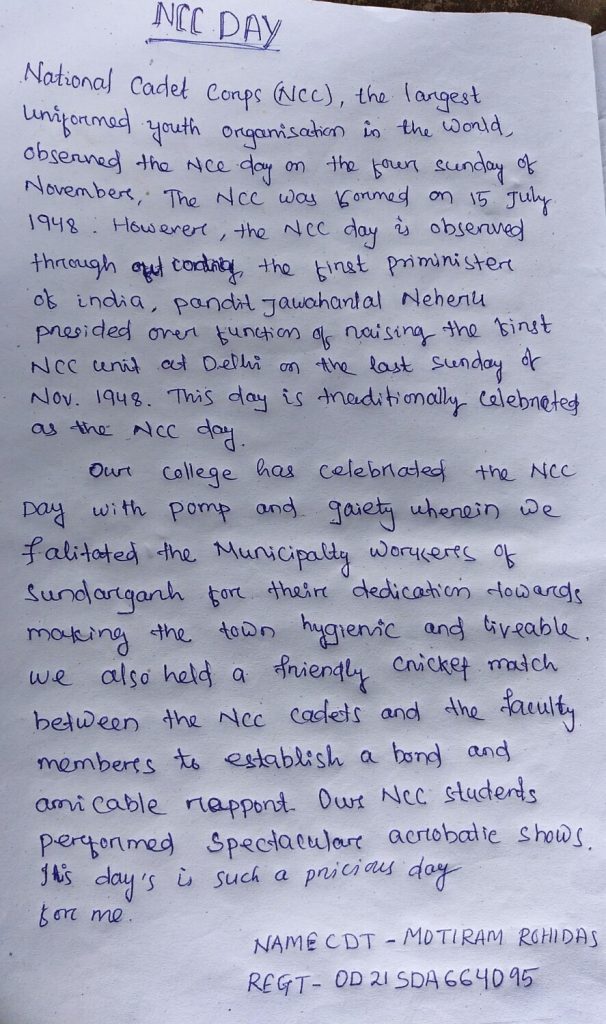 NCC DAY
National Cadet Corps (NCC), the largest
uniformed youth organisation in the World,
observed the NCC day on the four sunday of
Novembers, The NCC was formed on 15 July
1948. Howevere, the NCC day is observed
through the first priminister
of india, pandit Jawaharlal Neheru
presided over function of raising the first
NCC unit at Delhi on the last Sunday of
Nov. 1948. This day is traeditionally celebrated
as the NCC day.
Our college has celebrated the NCC
Day with pomp and gaiety wherein we
falitated the Municipalty Workeres of
Sundargarh for their dedication towards
making the town hygienic and liveable.
we also held a friendly cricket match
between the NCC cadets and the faculty
memberes to establish a bond and
amicable rapport. Our NCC students
performed Spectaculare acrobatic shows.
This day's is such a pricious day
fore me.
NAME CDT - MOTIRAM ROHIDAS
REGT- OD21SDA664095